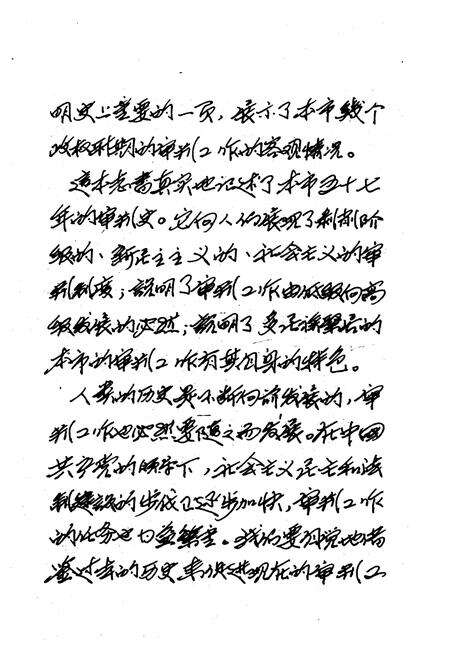 明史上重要的一页，展示了本市幾个
政权科期的审判工作的客观情况。
这本志書真实地记述了本市五十七
年的审判史。它向人们展现了剥削阶
级的、新民主主义的、社会主义的审
判制度；説明了审判工作由低级向高
级发展的必然；説明了多民族聚居的
本市的审判工作有其自身的特色。
人类的历史是不断向前发展的，审
判工作也必然要随之而发展。在中国
共产党的领导下，社会主义民主和法
制建设的步伐正逐步加快，审判工作
的任务也日益繁重。我们要自觉地借
鉴过去的历史来促进现在的审判工